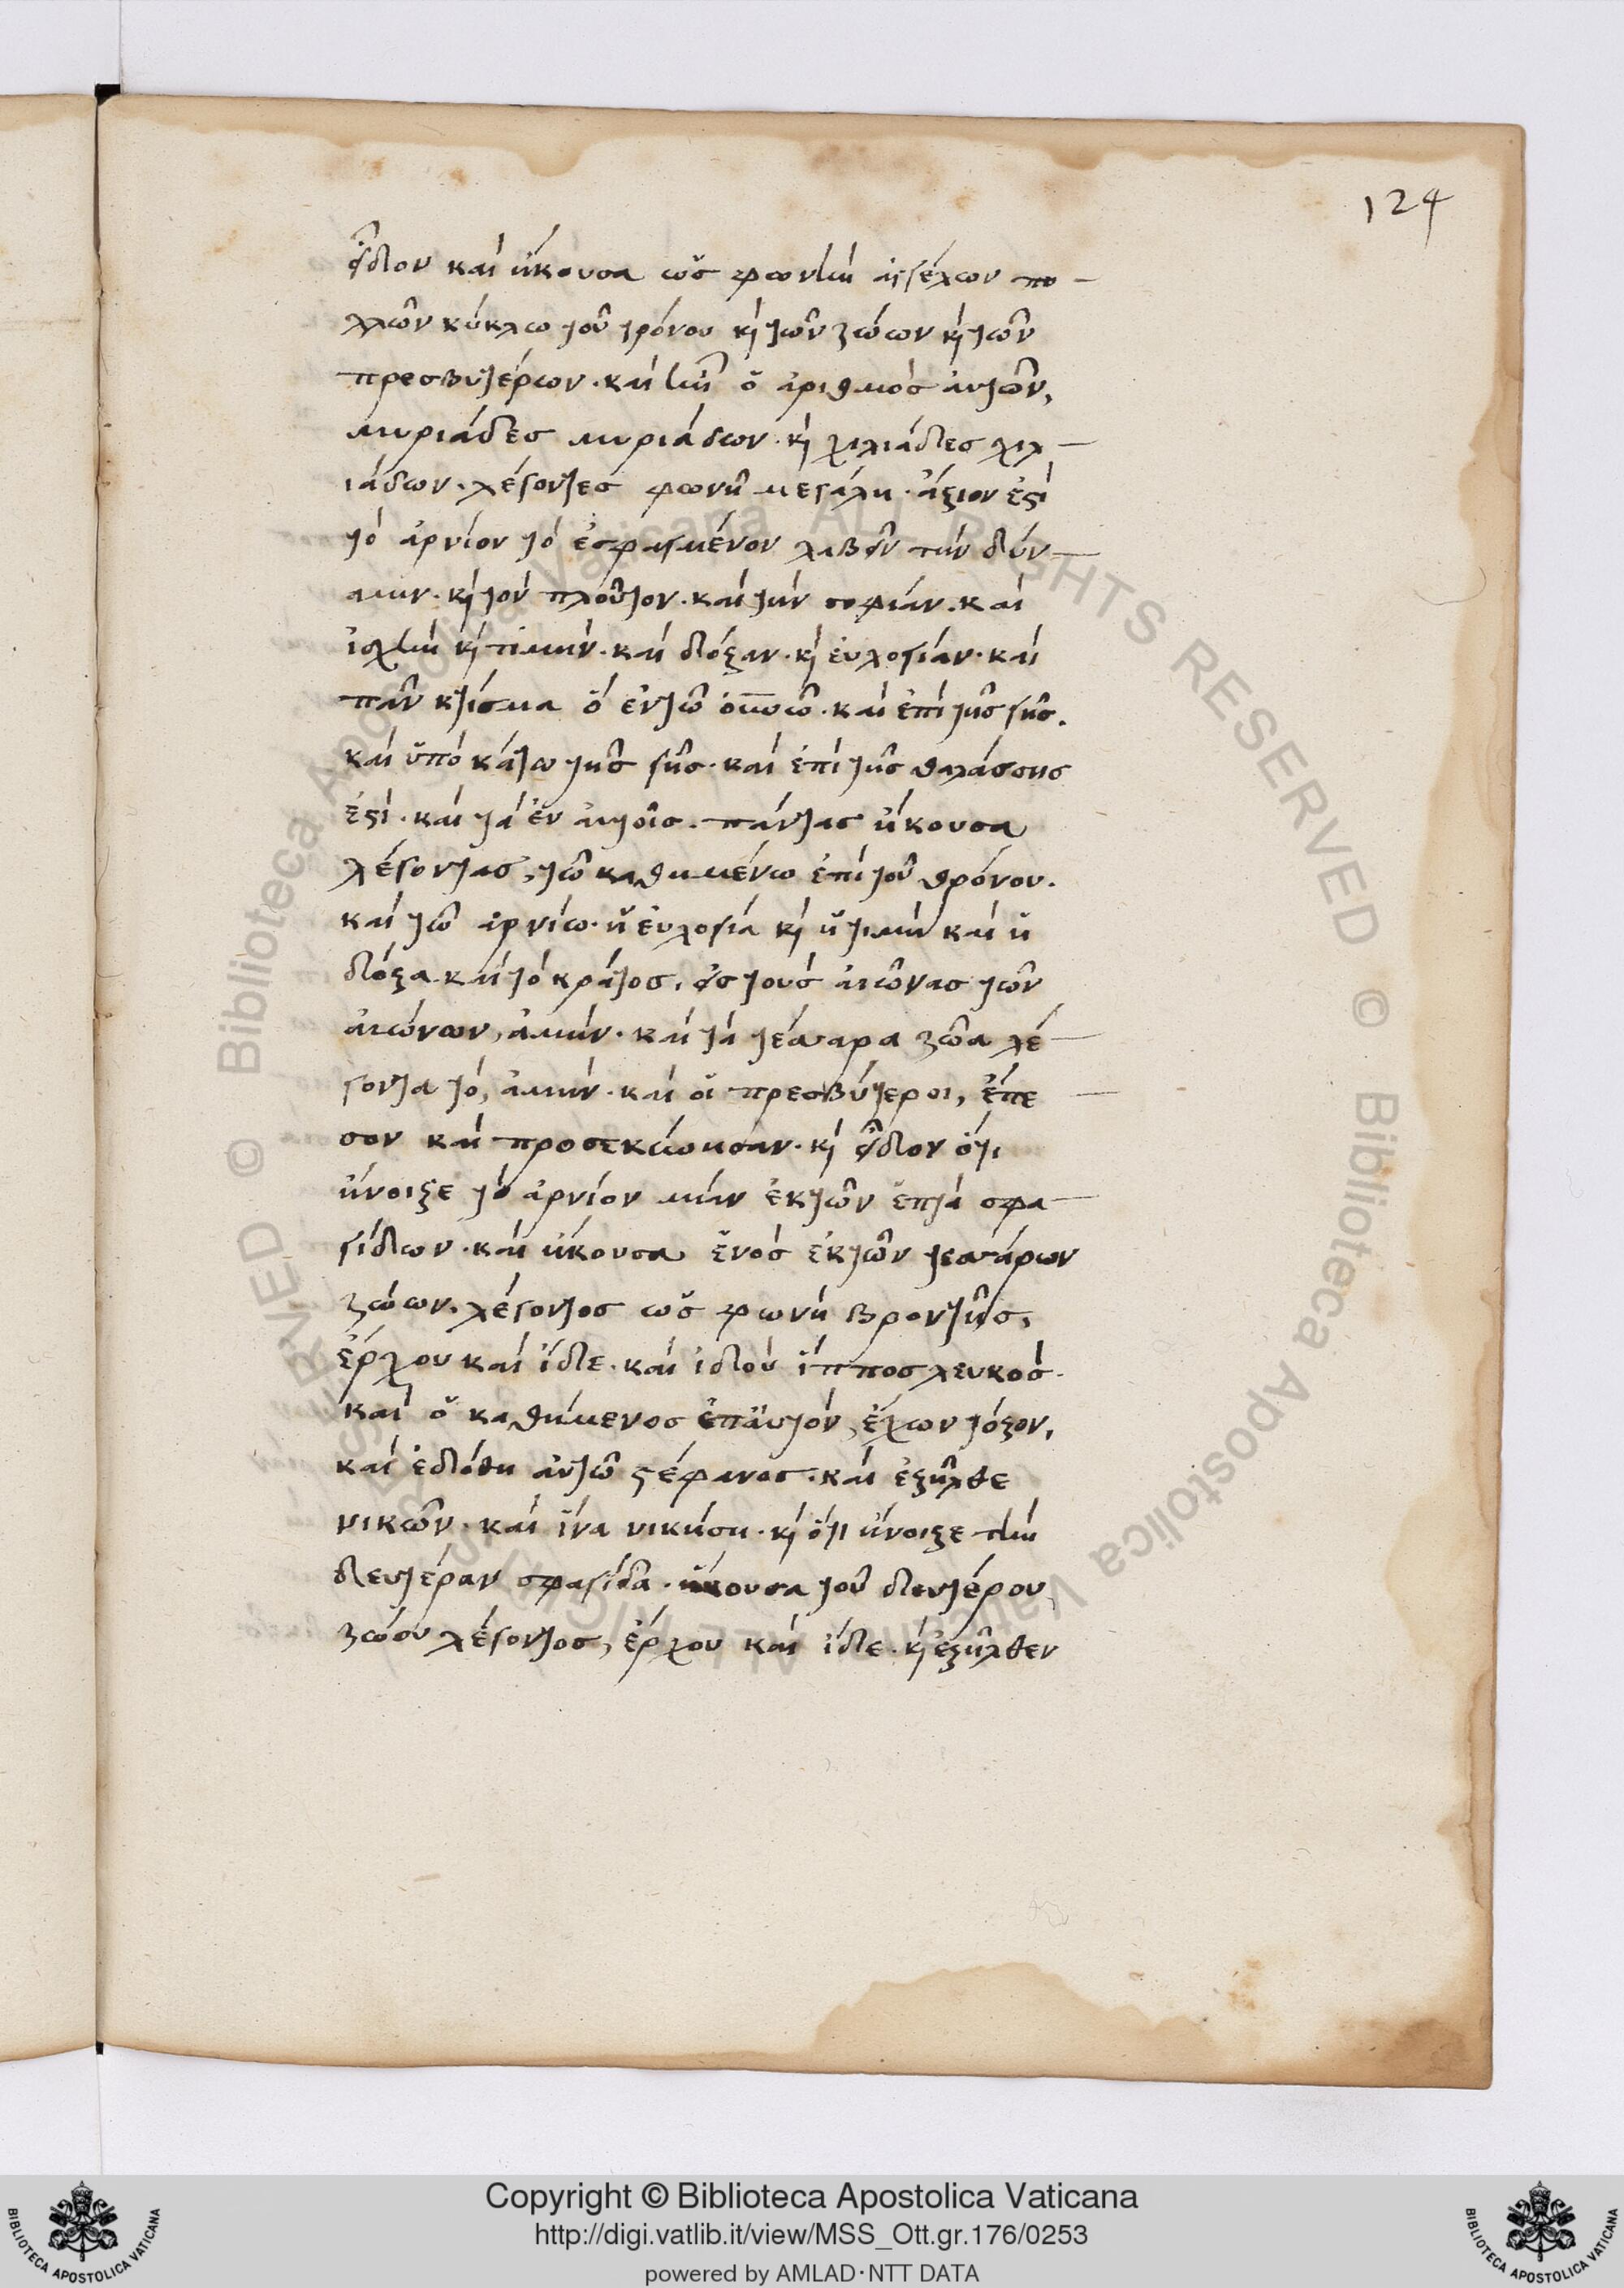 124
εἶδον καὶ ἤκουσα ὡς φωνὴν ἀγγέλων πο-
λλῶν κύκλω τοῦ θρόνου κ̀ τῶν ζώων κ̀ τῶν
πρεσβυτέρων. καὶ ἦν ὁ ἀριθμὸς ἀυτῶν,
μυριάδες μυριάδων. κ̀ χιλιάδες χιλ-
ιάδων. λέγοντες φωνῆ μεγάλη. ἄξιον ἐστὶ
τὸ ἀρνίον τὸ ἐσφαγμένον λαβεῖν τὴν δύν-
αμιν. κ̀ τὸν πλοῦτον. καὶ τὴν σοφίαν. καὶ
ἰσχὺν κ̀ τιμὴν. καὶ δόξαν. κ̀ ἐυλογίαν. καὶ
πᾶν κτίσμα ὃ ἐν τῶ ὀυνῶ. καὶ ἐπὶ τῆς γῆς.
καὶ ὑπὸ κάτω τῆς γῆς. καὶ ἐπὶ τῆς θαλάσσης
ἐστὶ. καὶ τὰ ἐν ἀυτοῖς. πάντας ἤκουσα
λέγοντας, τῶ καθημένω ἐπὶ τοῦ θρόνου.
καὶ τῶ ἀρνίω. ἡ ἐυλογία κ̀ ἡ τιμὴ καὶ ἡ
δόξα. καὶ τὸ κράτος. εἰς τοὺς ἀιῶνας τῶν
ἀιώνων, ἀμήν. καὶ τὰ τέσσαρα ζῶα λέ-
γοντα τὸ, ἀμήν. καὶ οἱ πρεσβύτεροι, ἔπε-
σον καὶ προσεκύνησαν. κ̀ εἶδον ὅτι
ἤνοιξε τὸ ἀρνίον μίαν ἐκ τῶν ἑπτὰ σφρα-
γίδων. καὶ ἤκουσα ἑνὸς ἐκ τῶν τεσσάρων
ζώων. λέγοντος ὡς φωνὴ βροντῆς,
ἔρχου καὶ ἴδε. καὶ ἰδοὺ ἵππος λευκὸς.
καὶ ὁ καθήμενος ἐπ' ἀυτὸν, ἔχων τόξον,
καὶ ἐδόθη ἀυτῶ στέφανος. καὶ ἐξῆλθε
νικῶν. καὶ ἵνα νικήση. κ̀ ὅτι ἤνοιξε τὴν
δευτέραν σφραγίδα. ἤκουσα τοῦ δευτέρου
ζώου λέγοντος, ἔρχου καὶ ἴδε. κ̀ ἐξῆλθεν
Copyright © Biblioteca Apostolica Vaticana
http://digi.vatlib.it/view/MSS_Ott.gr.176/0253
powered by AMLAD·NTT DATA